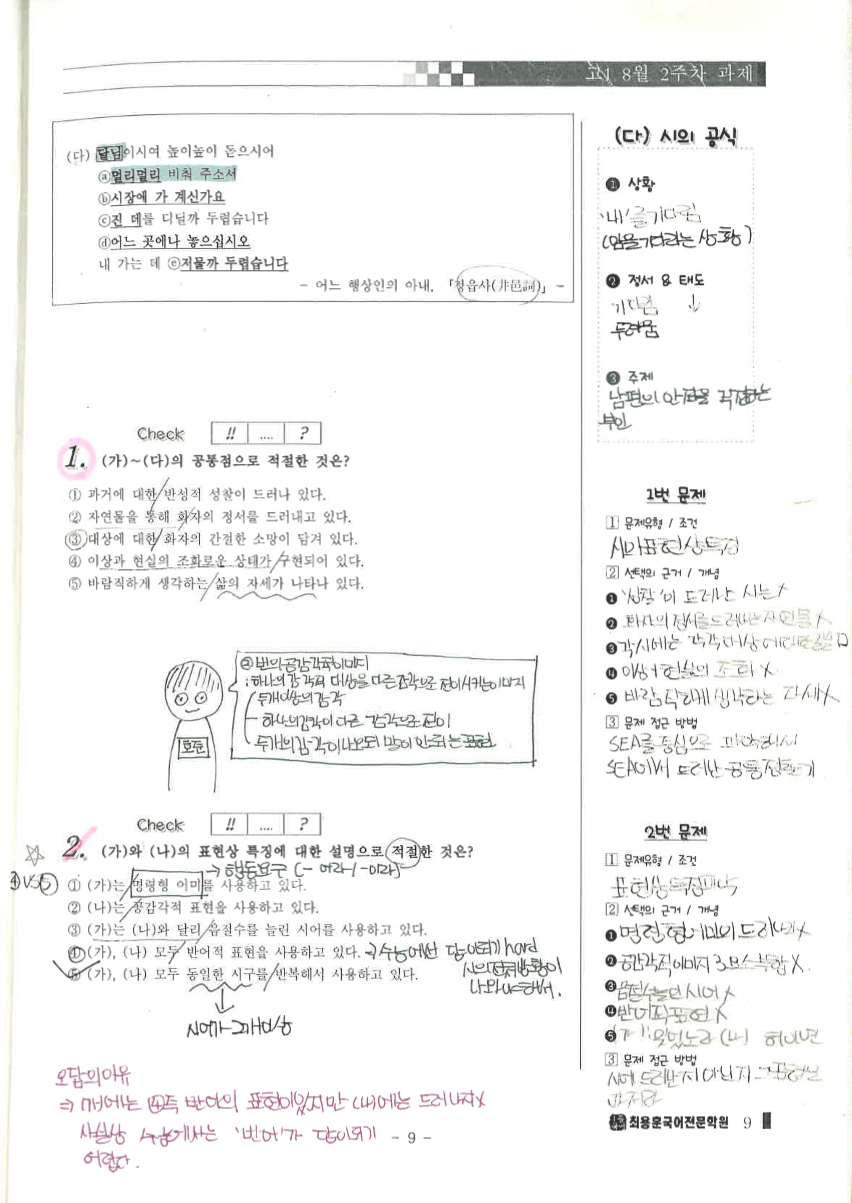 고1 8월 2주차 과제
(다) 달님이시여 높이높이 돋으시어
ⓐ멀리멀리 비춰 주소서
ⓑ시장에 가 계신가요
ⓒ진 데를 디딜까 두렵습니다
ⓓ어느 곳에나 놓으십시오
내 가는 데 ⓔ저물까 두렵습니다
- 어느 행상인의 아내, 「정읍사(井邑詞)」 -
(다) 시의 공식
❶ 상황
(임을 기다리는 상황)
❷ 정서 & 태도
기다림 ↓
두려움
❸ 주제
남편의 안전을 걱정하는
부인
Check !! .... ?
1. (가)~(다)의 공통점으로 적절한 것은?
① 과거에 대한 반성적 성찰이 드러나 있다.
② 자연물을 통해 화자의 정서를 드러내고 있다.
③ 대상에 대한 화자의 간절한 소망이 담겨 있다.
④ 이상과 현실의 조화로운 상태가 구현되어 있다.
⑤ 바람직하게 생각하는 삶의 자세가 나타나 있다.
1번 문제
1 문제유형 / 조건
시의 표현상 특징
2 선택의 근거 / 개념
❶ '성찰'이 드러난 시는 X
❷ 화자의 정서를 드러내는 자연물 X
❸ 각 시에는 각각 대상에 대한
❹ 이상+현실의 조화 X
❺ 바람직하게 생각하는 자세 X
3 문제 접근 방법
SEA를 중심으로 파악해서
SEA에서 드러난 공통점 찾기
② 번의 공감각적 이미지
: 하나의 감각의 대상을 다른 감각으로 전이시키는 이미지
두개 이상의 감각
- 하나의 감각이 다른 감각으로 전이
두개의 감각이 나오되 말이 안되는 표현
Check !! .... ?
2. (가)와 (나)의 표현상 특징에 대한 설명으로 적절한 것은?
→ 행동요구 (- 어라/-아라)
④ VS ⑤
① (가)는 명령형 어미를 사용하고 있다.
② (나)는 공감각적 표현을 사용하고 있다.
③ (가)는 (나)와 달리 음절수를 늘린 시어를 사용하고 있다.
④ (가), (나) 모두 반어적 표현을 사용하고 있다. → 수능에선 답이 되기 hard
⑤ (가), (나) 모두 동일한 시구를 반복해서 사용하고 있다.
시의 전체 상황이
나와야 해서.
시어가 2개 이상
2번 문제
1 문제유형 / 조건
표현상 특징 파악
2 선택의 근거 / 개념
❶ 명령형 어미의 드러나기 X
❷ 공감각적 이미지 X
❸ 음절수 늘인 시어 X
❹ 반어적 표현 X
❺ (가) (나)
3 문제 접근 방법
시에 드러난지 아닌지
오답의 이유
⇒ (가)에는 ④즉 반어의 표현이 있지만 (나)에는 드러나지 X
사실상 수능에서는 '반어'가 답이 되기
어렵다.
- 9 -
최용훈국어전문학원 9